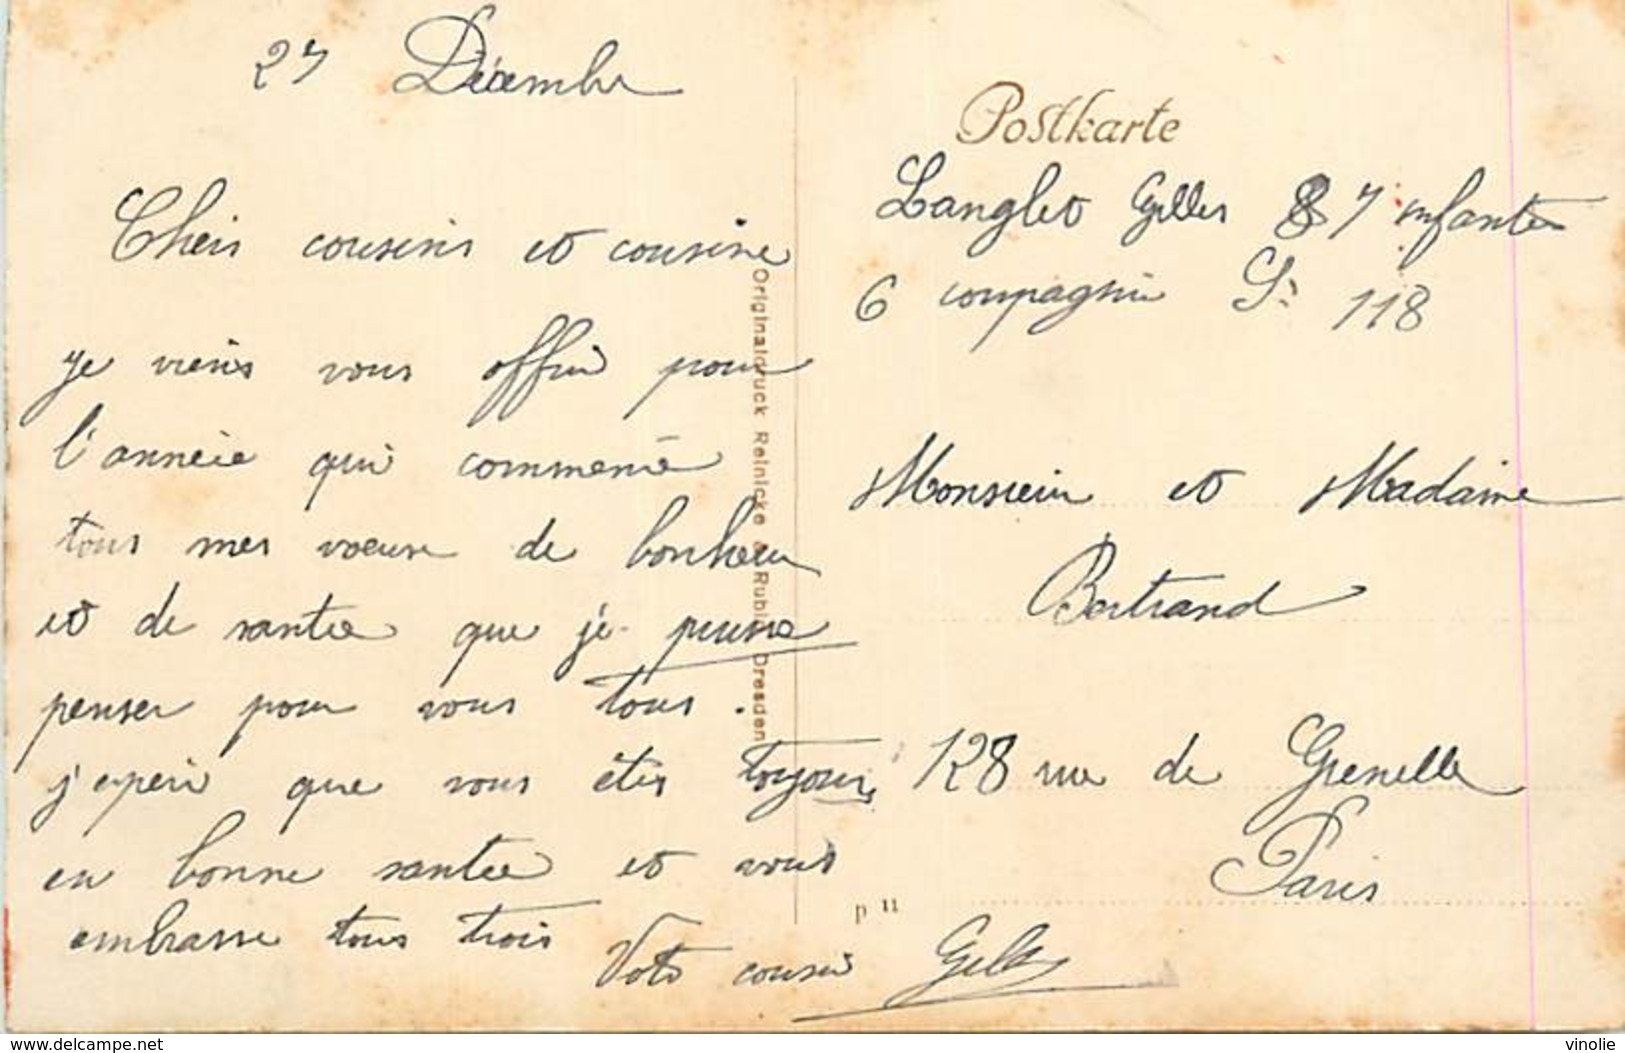 27 Décembre
Chers cousins et cousine
je viens vous offrir pour
l'année qui commence
tous mes voeux de bonheur
et de santée que je puisse
penser pour vous tous.
j'espère que vous êtes toujours
en bonne santée et vous
embrasse tous trois
Votre cousin Gilles
Originaldruck Reinicke & Rubin, Dresden
Postkarte
Langlet Gilles 87 infanterie
6 compagnie S. 118
Monsieur et Madame
Bertrand
128 rue de Grenelle
Paris
www.delcampe.net
vinolie